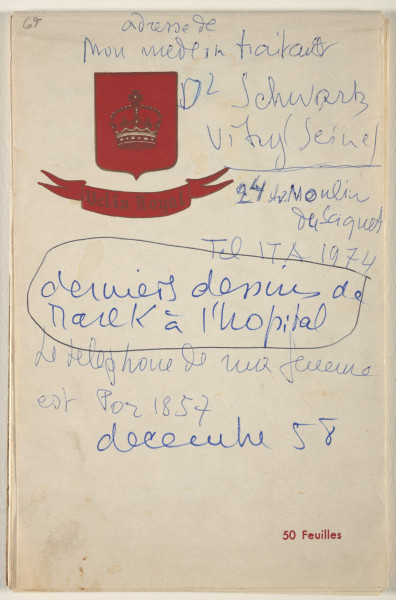 69
adresse de
mon médecin traitant
Dr Schwartz
Vitry (Seine)
Velin Royal
24 du Moulin
de Saquet
Tel ITA 1974
derniers dessins de
Marek à l'hopital
Le telephone de ma femme
est Por 1857
decembre 58
50 Feuilles